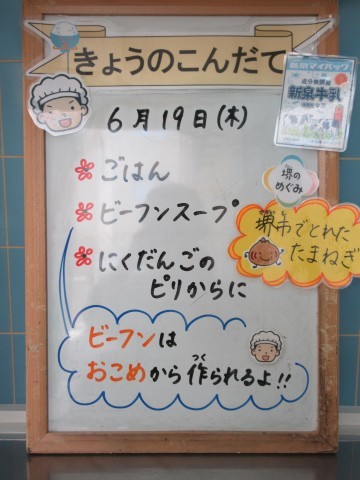 きょうのこんだて
6月19日(木)
ごはん
ビーフンスープ
にくだんごの
ピリからに
新泉牛乳
堺の
めぐみ
堺市でとれた
たまねぎ
ビーフンは
おこめから作られるよ!!
つく